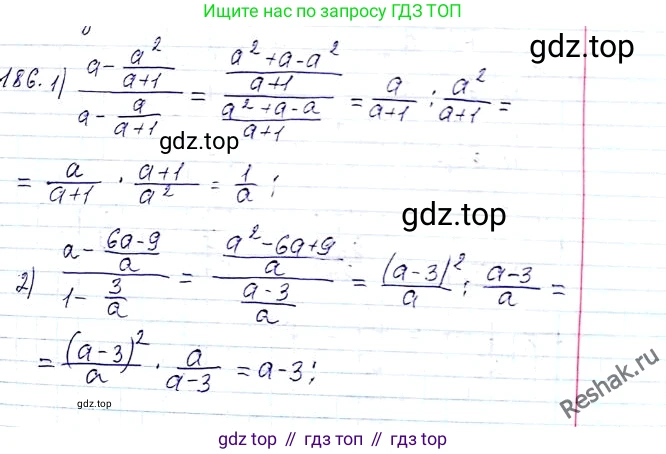 Ищите нас по запросу ГДЗ ТОП
186. 1) (a - a²/(a+1)) / (a - a/(a+1)) = ((a²+a-a²)/(a+1)) / ((a²+a-a)/(a+1)) = a/(a+1) : a²/(a+1) =
gdz.top
gdz.top
= a/(a+1) · (a+1)/a² = 1/a;
gdz.top
2) (a - (6a-9)/a) / (1 - 3/a) = ((a²-6a+9)/a) / ((a-3)/a) = (a-3)²/a : (a-3)/a =
= (a-3)²/a · a/(a-3) = a-3;
Reshak.ru
gdz.top // гдз топ // gdz.top